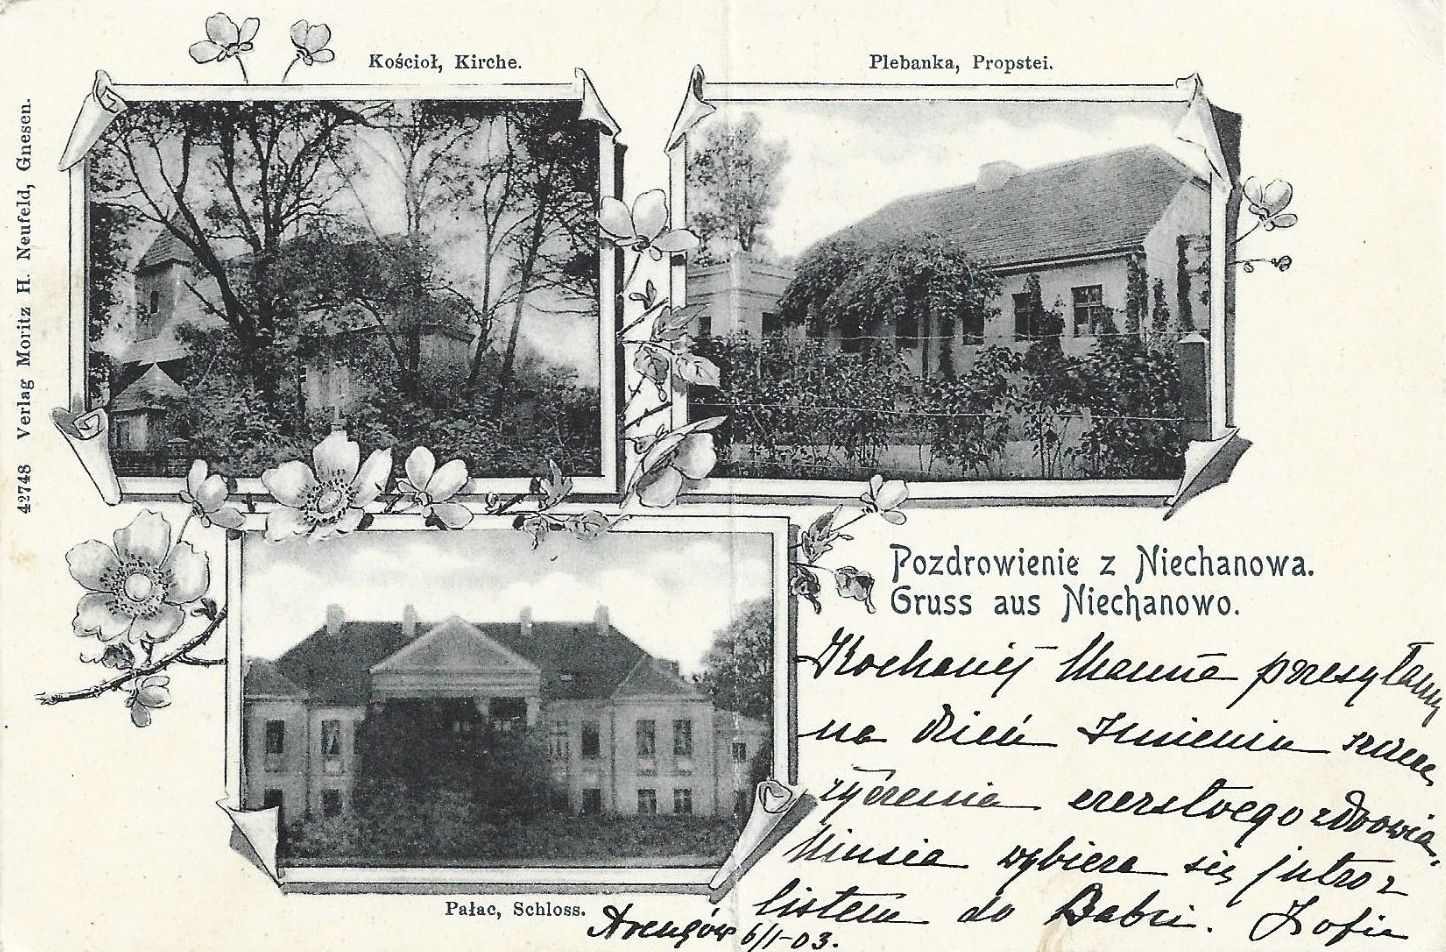 Kościoł, Kirche.
Plebanka, Propstei.
42748 Verlag Moritz H. Neufeld, Gnesen.
Pozdrowienie z Niechanowa.
Gruss aus Niechanowo.
Kochanej Mamie przesyłamy
na dzień Imienin szczere
życzenia czerstwego zdrowia,
Niusia wybiera się jutro z
listem do Babci. Zofia
Pałac, Schloss.
6/1-03.